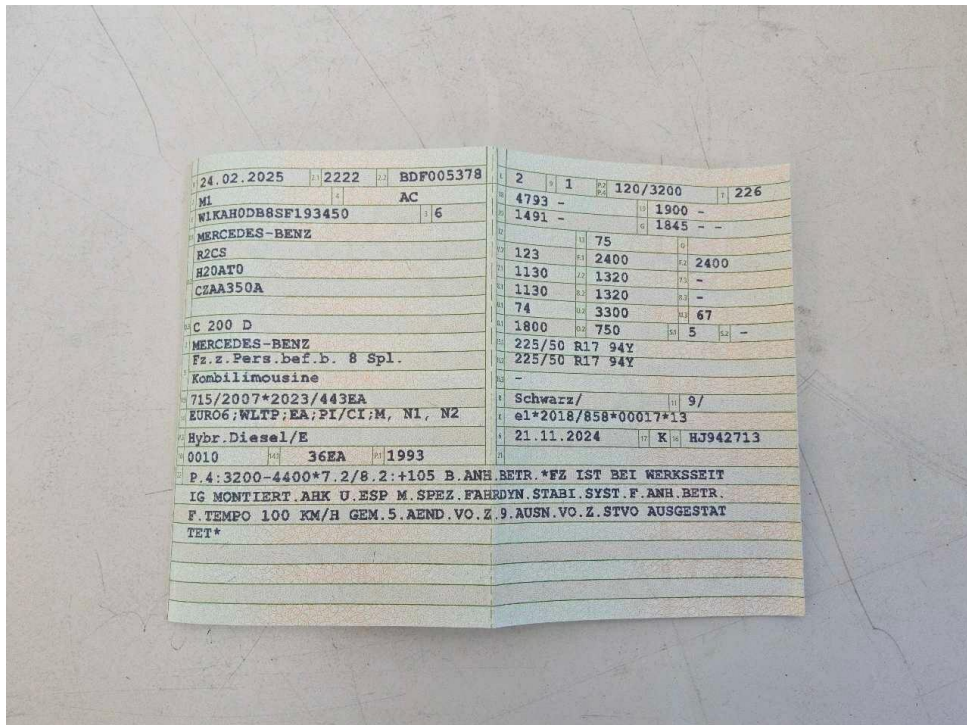 24.02.2025 2.1 2222 2.2 BDF005378
M1 AC
W1KAH0DB8SF193450 6
MERCEDES-BENZ
R2CS
H20AT0
CZAA350A
C 200 D
MERCEDES-BENZ
Fz.z.Pers.bef.b. 8 Spl.
Kombilimousine
715/2007*2023/443EA
EURO6;WLTP;EA;PI/CI;M, N1, N2
Hybr.Diesel/E
0010 36EA P.1 1993
2 9 1 P.2 P.4 120/3200 T 226
4793 - 1900 -
1491 - G 1845 - -
75
123 F.1 2400 F.2 2400
1130 7.2 1320 7.3 -
1130 8.2 1320 8.3 -
74 U.2 3300 U.3 67
1800 O.2 750 S.1 5 S.2 -
225/50 R17 94Y
225/50 R17 94Y
-
Schwarz/ 11 9/
e1*2018/858*00017*13
21.11.2024 17 K 16 HJ942713
P.4:3200-4400*7.2/8.2:+105 B.ANH.BETR.*FZ IST BEI WERKSSEIT
IG MONTIERT.AHK U.ESP M.SPEZ.FAHRDYN.STABI.SYST.F.ANH.BETR.
F.TEMPO 100 KM/H GEM.5.AEND.VO.Z.9.AUSN.VO.Z.STVO AUSGESTAT
TET*